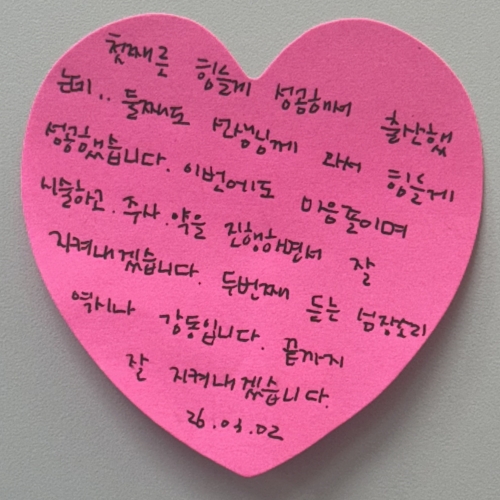 첫째를 힘들게 성공해서 출산했
는데.. 둘째도 선생님께 와서 힘들게
성공했습니다. 이번에도 마음졸이며
시술하고. 주사.약을 진행하면서 잘
지켜내겠습니다. 두번째 듣는 심장소리
역시나 감동입니다. 끝까지
잘 지켜내겠습니다.
26.03.02